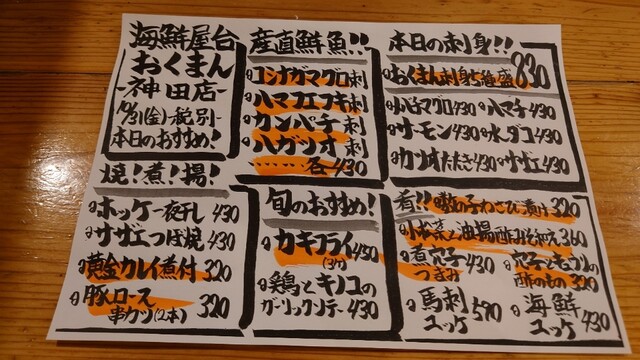 海鮮屋台
おくまん
-神田店-
10/31(金)税別
本日のおすすめ!
産直鮮魚!!
コシナガマグロ刺
ハマコエコキ刺
カンパチ刺
ハガツオ刺
………各430
本日の刺身!!
おくまん刺身5種盛830
ハマチ430
サーモン430 水ダコ430
カツオたたき430 サザエ430
焼!煮!揚!
ホッケ一夜干し430
サザエつぼ焼430
黄金カレイ煮付320
豚ロース
串カツ(2本)320
旬のおすすめ!
カキフライ430
(3ケ)
鶏とキノコの
ガーリックソテー430
肴!!
数の子わさび漬け320
小松菜と油揚酢みそ和え360
煮穴子
つまみ430
穴子とキュウリの
酢のもの320
馬刺
ユッケ590
海鮮
ユッケ430